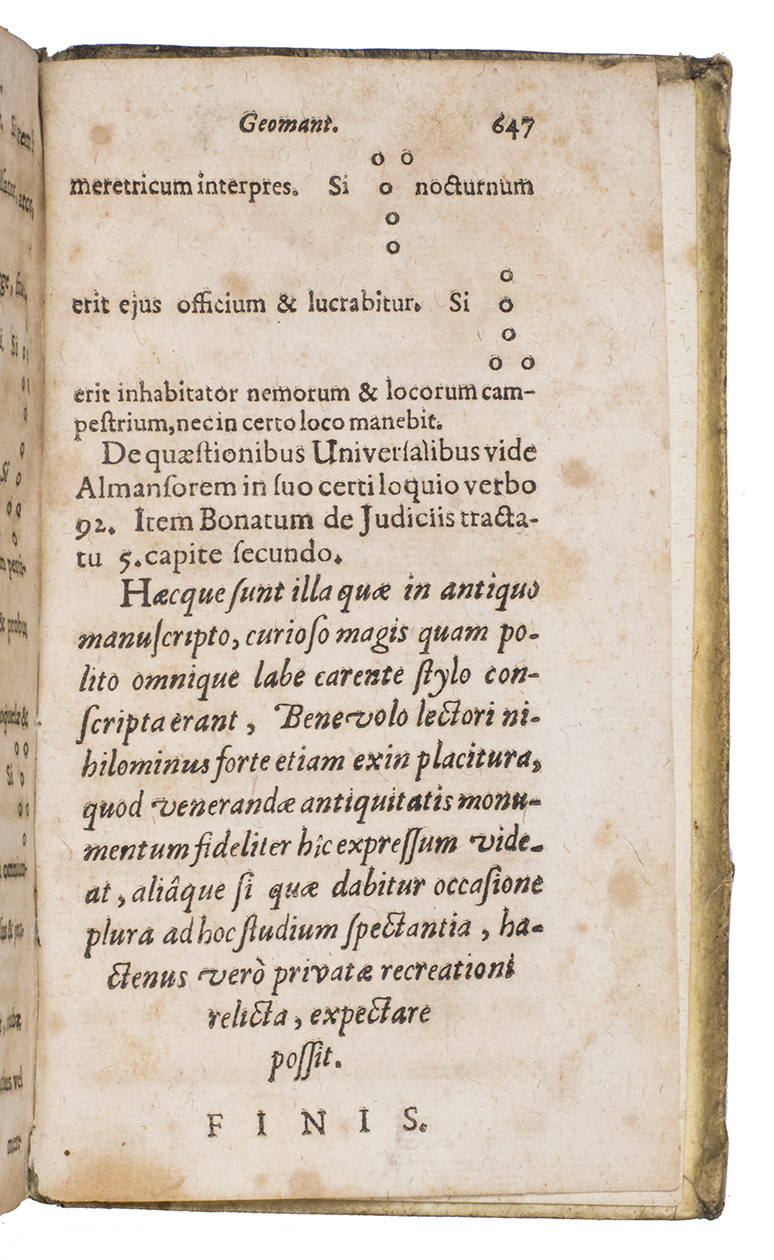 Geomant. 647
o o
meretricum interpres. Si o nocturnum
o
o
o
erit ejus officium & lucrabitur. Si o
o
o o
erit inhabitator nemorum & locorum cam-
pestrium, nec in certo loco manebit.
De quæstionibus Universalibus vide
Almansorem in suo certiloquio verbo
92. Item Bonatum de Judiciis tracta-
tu 5. capite secundo.
Hæcque sunt illa quæ in antiquo
manuscripto, curioso magis quam po-
lito omnique labe carente stylo con-
scripta erant, Benevolo lectori ni-
hilominus forte etiam exin placitura,
quod venerandæ antiquitatis monu-
mentum fideliter hîc expressum vide-
at, aliâque si quæ dabitur occasione
plura ad hoc studium spectantia, ha-
ctenus verò privatæ recreationi
relicta, expectare
possit.
FINIS.